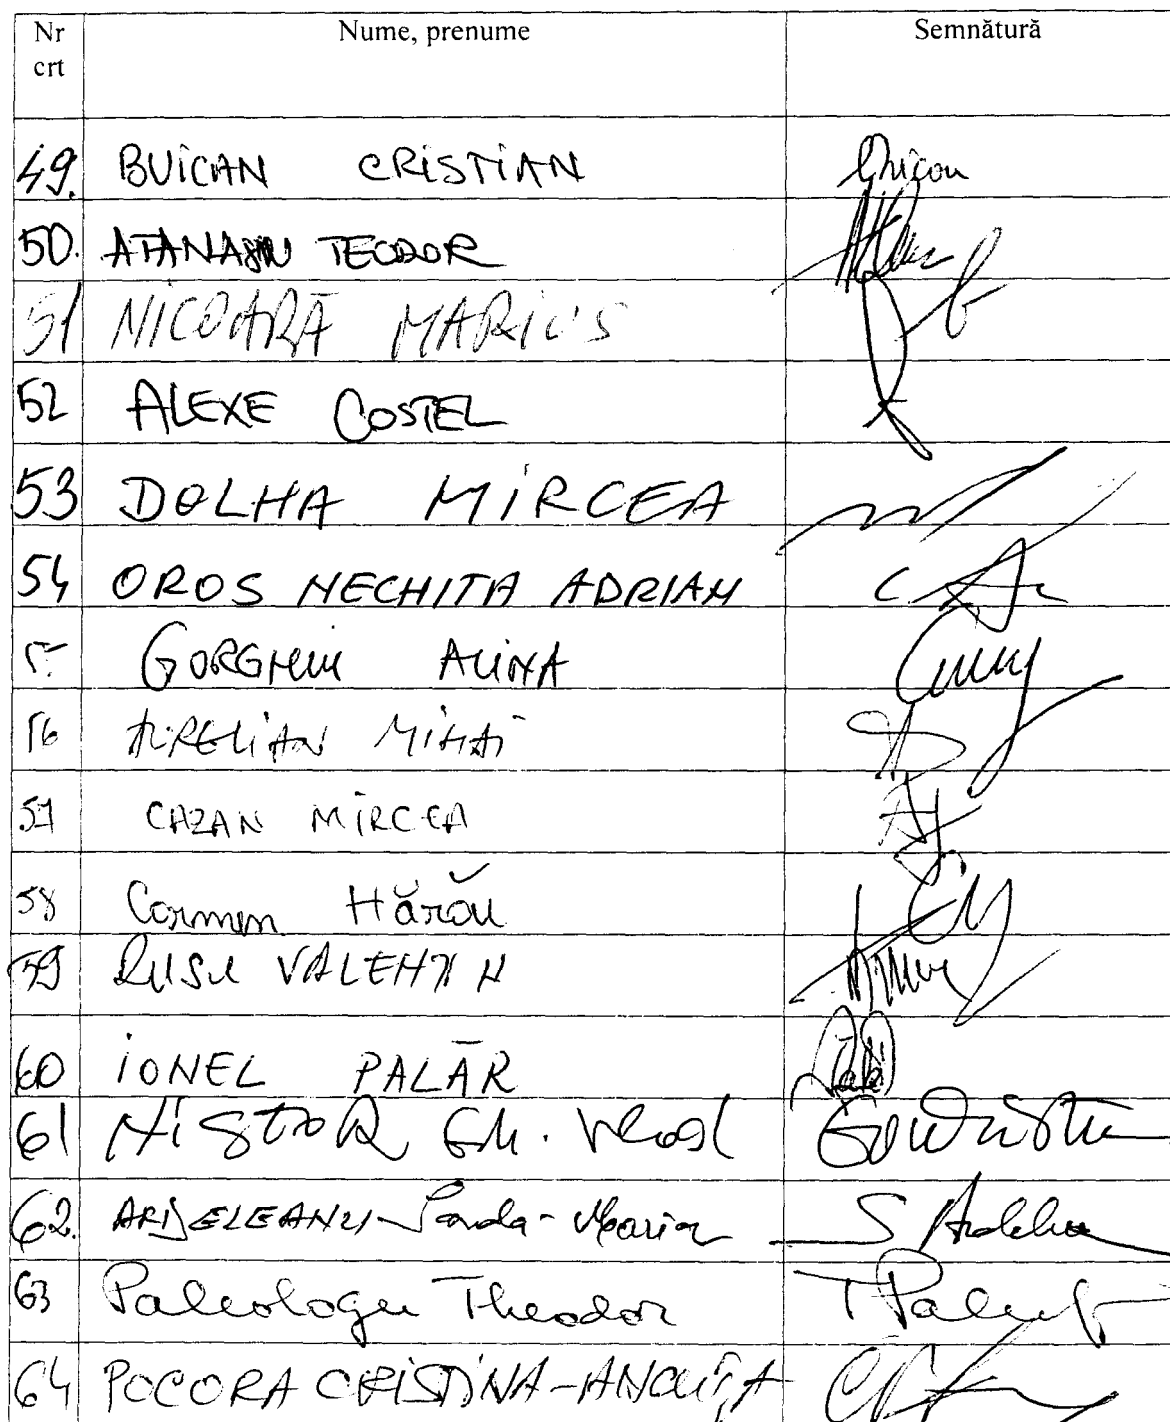 Nr crt Nume, prenume Semnătură
49. BUICAN CRISTIAN
50. ATANASIU TEODOR
51 NICOARĂ MARIUS
52 ALEXE COSTEL
53 DOLHA MIRCEA
54 OROS NECHITA ADRIAN
GORGHIU ALINA
56 AURELIAN MIHAI
57 CAZAN MIRCEA
58 Carmen Hărău
59 RUSU VALENTIN
60 IONEL PALĂR
61 NISTOR Gh. Vlad
62. ARDELEANU-Sanda-Maria S Ardelea
63 Paleologu Theodor T Paleologu
64 POCORA CRISTINA-ANCUȚA